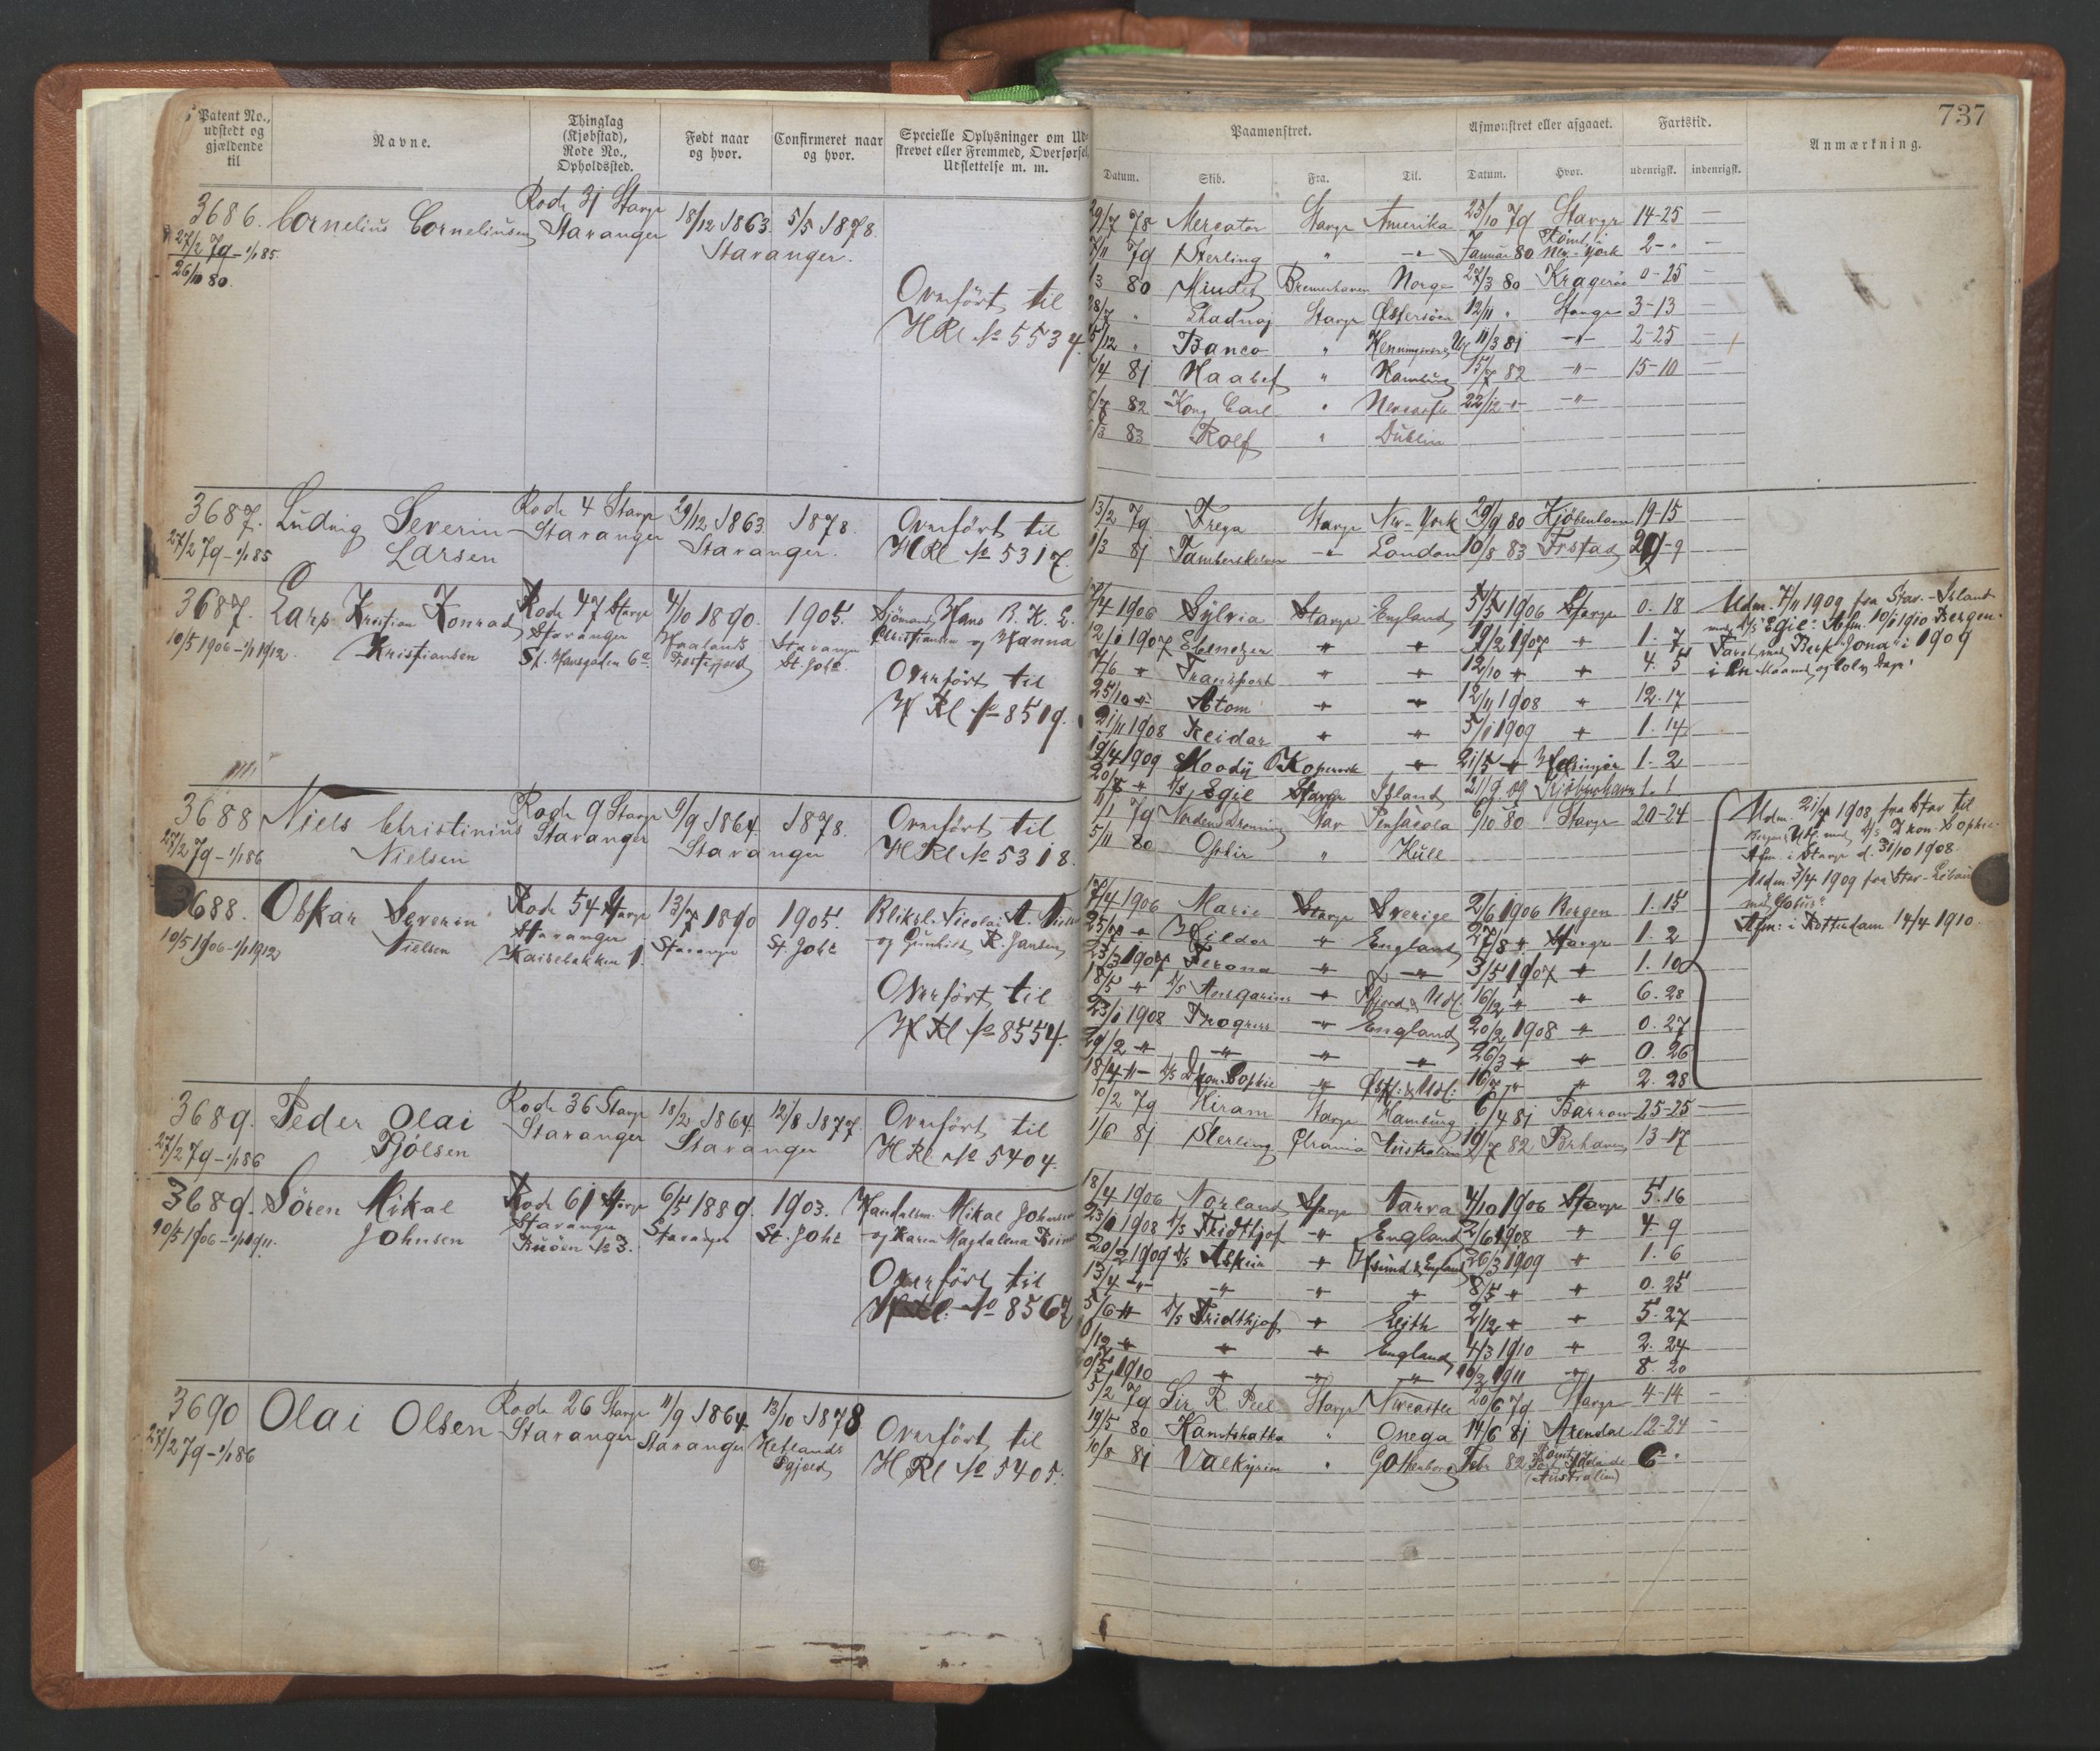 Patent No.,
udstedt og
gjældende
til
Navne.
Thinglag
(Kjøbstad),
Rode No.,
Opholdssted.
Født naar
og hvor.
Confirmeret naar
og hvor.
Specielle Oplysninger om Ud-
skrevet eller Fremmed, Overførsel,
Udslettelse m. m.
3686. Cornelius Corneliusen
27/2 79 - 1/1 85
26/10 80.
Rode 31 Stavgr
Stavanger
18/12 1863. 5/5 1878.
Stavanger.
Overført til
HRl No 5534
3687. Ludvig Severin
Larsen
27/2 79 - 1/1 85
Rode 4 Stavgr
Stavanger
29/12 1863 1878.
Stavanger.
Overført til
HRl No 5317.
3687. Lars Kristian Konrad
Kristiansen
10/5 1906 - 1/1 1912.
Rode 47 Stavgr
Stavanger
St. Hansgaden 6a
4/10 1890. 1905.
Stavanger
St. Joh
Sjömand Hans B. K. L.
Christiansen og Hanna
Overført til
H Rl No 8519.
3688 Niels Christinius
Nielsen
27/2 79 - 1/1 86
Rode 9 Stavgr
Stavanger
9/9 1864. 1878.
Stavanger
Overført til
HRl No 5318.
3688. Oskar Severin
Nielsen
10/5 1906 - 1/1 1912
Rode 54 Stavgr
Stavanger
13/7 1890 1905.
Stavanger St. Joh
Bliksl. Nicolai A.
og Gunhild R. Jansen
Overført til
H Rl No 8554.
3689. Peder Olai
Tjólsen
27/2 79 - 1/1 86
Rode 36 Stavgr
Stavanger
18/2 1864 12/8 1877.
Stavanger
Overført til
HRl No 5404.
3689. Sören Mikal
Johnsen
10/5 1906 - 1/1 1911.
Rode 61 Stavgr
Stavanger
6/5 1889. 1903.
Stavanger St. Joh
Handelsm. Mikal Johnsen
og Karen Magdalena
Overført til
H Rl. No 8567
3690 Olai Olsen
27/2 79 - 1/1 86
Rode 26 Stavgr
Stavanger
11/9 1864. 13/10 1878
Stavanger Hetlands
Overført til
HRl No 5405.
737
Paamønstret.
Afmønstret eller afgaaet.
Fartstid.
Anmærkning.
Datum. Skib. Fra. Til. Datum. Hvor. udenrigsk. indenrigsk.
29/7 78 Mercator Stavgr Amerika 25/10 79 Stavgr 14-25 —
7/11 79 Sterling " —"— Januar 80 New-York 2- " —
1/3 80 Bremerhaven Norge 27/3 80 Kragerø 0-25 —
28/7 " Stavgr Østersøen 12/11 " Stavgr 3-13 —
5/12 " Banco " 11/3 81 —"— 2-25 —
/4 81 Haabet " Hamburg 15/7 82 —"— 15-10 —
/7 82 Kong Carl " 22/12 —"— —"—
/3 83 Rolf " Dublin
13/2 79 Freya Stavgr New-York 29/9 80 Kjöbenhavn 19-15 —
1/3 81 —"— London 10/8 83 —
17/4 1906 Sylvia Stavgr England 5/5 1906 Stavgr 0. 18
12/1 1907 Ebenezer " " 19/2 1907 " 1. 7
7/6 " Transport " " 12/10 " " 4. 5
25/10 " Atom " " 12/11 1908 " 12. 17
21/11 1908 Reidar " " 5/1 1909 " 1. 14
19/4 1909 Moody Kopervik " 21/5 " Helsingör 1. 2
20/8 " D/S Egil Stavgr Island 21/9 09 Kjöbenhavn 1. 1
Udm. 7/11 1909 fra Stav.-Island
med D/S "Egil". Afm. 10/1 1910 Bergen.
Faret med Bark "Jona" i 1909
i en Maaned og tolv Dage.
11/1 79 Nordens Dronning Stav Pensacola 6/10 80 Stavgr 20-24
5/11 80 " Hull
17/4 1906 Marie Stavgr Sverige 2/6 1906 Bergen 1. 15
25/7 " Hildor " England 27/8 " Stavgr 1. 2
23/3 1907 Ferona " —"— 3/5 1907 " 1. 10
18/5 " D/S Ansgarius " 16/12 " " 6. 28
23/1 1908 Progress " England 20/2 1908 " 0. 27
29/2 " —"— " " 26/3 " " 0. 26
18/4 " D/S Dkon. Sophie " 16/7 " " 2. 28
Udm. 21/7 1908 fra Stav til
Bergen & Udl. med D/S Dkon. Sophie.
Afm. i Stavgr d. 31/10 1908.
Udm. 3/4 1909 fra Stav-Libau
Afm: i Rotterdam 14/4 1910.
10/2 79 Hiram Stavgr Hamburg 6/4 81 Barrow 25-25 —
1/6 81 Sterling Chrania Australien 19/7 82 13-17 —
18/4 1906 Norland Stavgr Narva 4/10 1906 Stavgr 5. 16
23/1 1908 D/S Fridthjof " England 2/6 1908 " 4. 9
20/2 1909 D/S " 26/3 1909 " 1. 6
13/4 " " " " 8/5 " " 0. 25
5/6 " D/S Fridthjof " Leith 2/12 " " 5. 27
/12 " " " England 4/3 1910 " 2. 24
/5 1910 " " " 16/2 1911 " 8. 20
5/2 79 Sir R. Peel Stavgr Newcastle 20/6 79 Stavgr 4-14 —
19/5 80 Kamtshatka " Onega 14/6 81 Arendal 12-24 —
10/8 81 Valkyrien " Gothenborg Febr 82 Adelaide 6- "
(Australien)